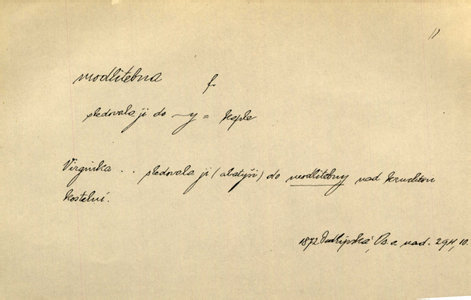 modlitebna f.
sledovala ji do –y = kaple
Virginka .. sledovala ji (abatyši) do modlitebny nad kruchtou
kostelní.
1872 Podlipská, Os. a nad. 294, 10.